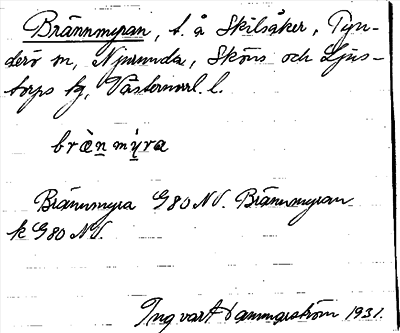 Brännmyran, t. å Skilsåker, Tyn-
derö sn, Njurunda, Sköns och Ljus-
torps tg, Västernorrl. l.
bræ̀n mỳra
Brännmyra G80 NV. Brännmyran
k G80 NV.
Ingvart Dammgeström 1931.